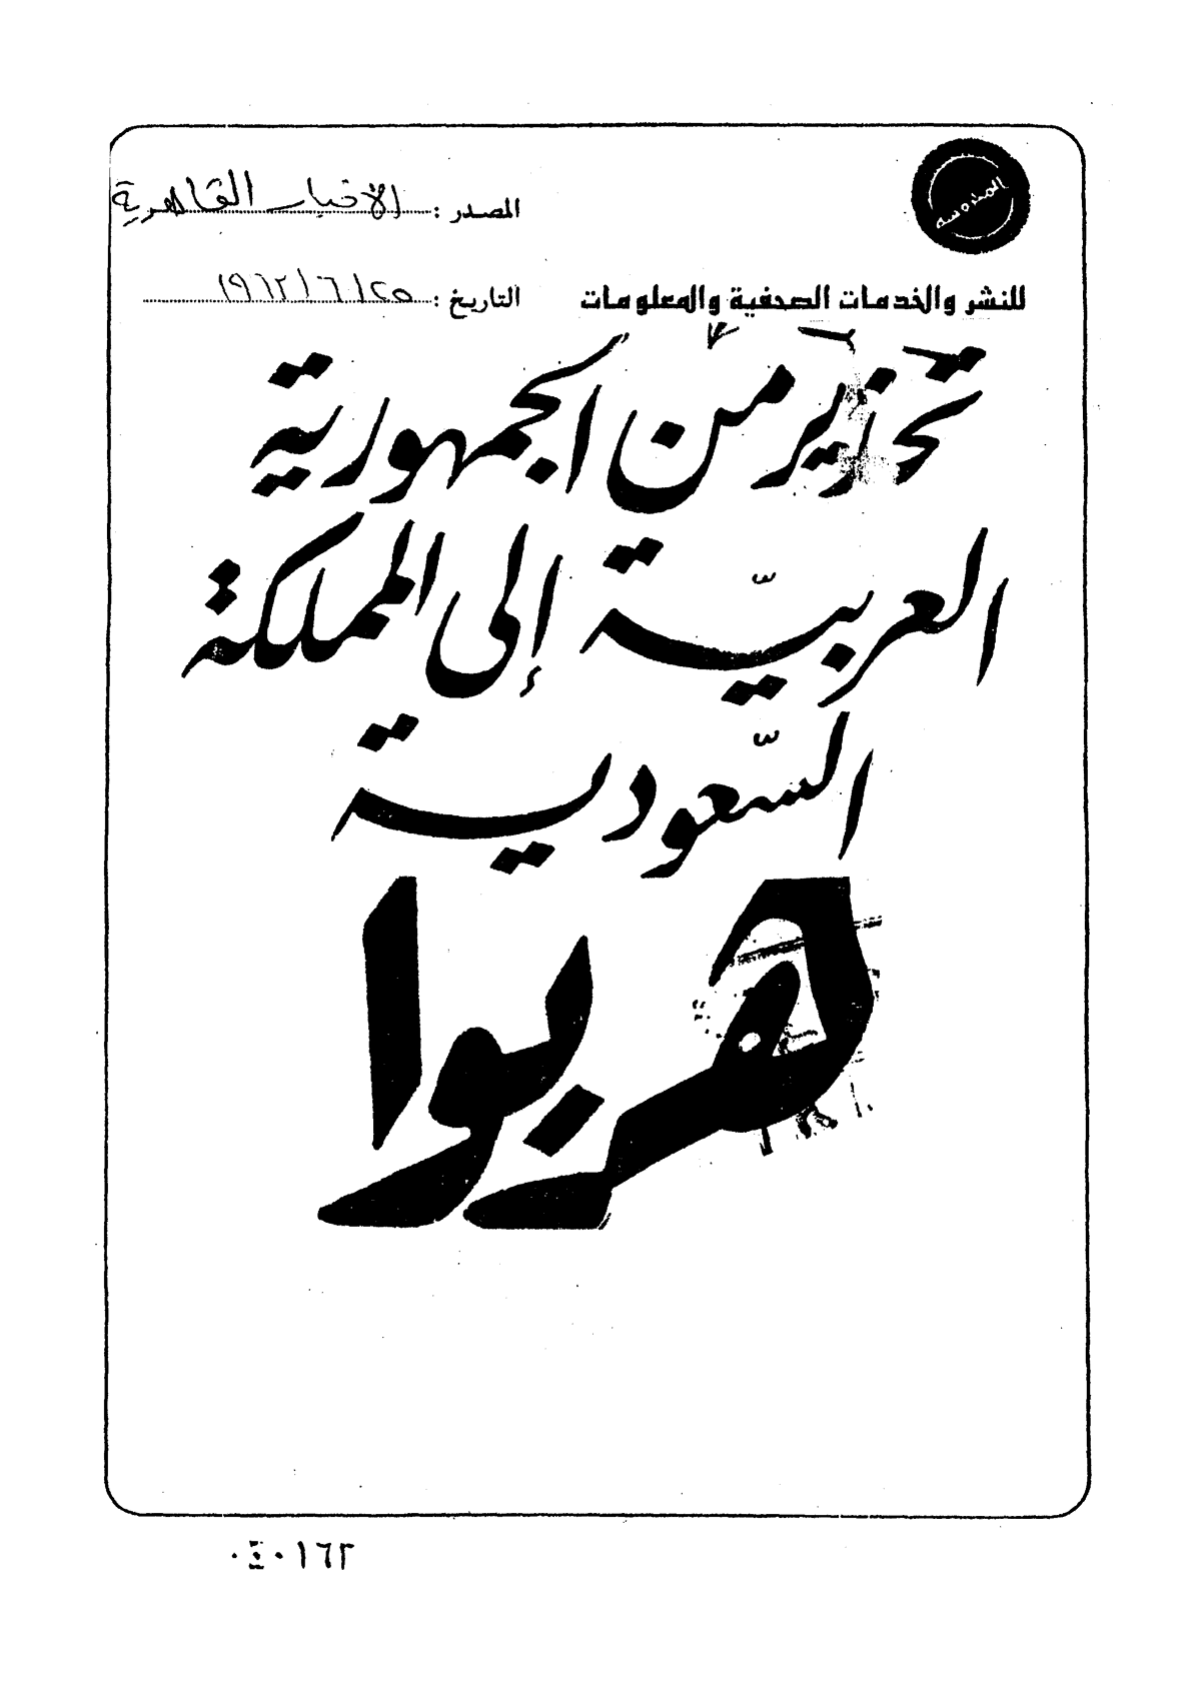 المحروسة
المصدر : الأخبار القاهرية
للنشر والخدمات الصحفية والمعلومات
التاريخ : ٢٥ / ٦ / ١٩٦٢
تحذير من الجمهورية
العربيّة إلى المملكة
السّعودية
هربوا
٠٤٠١٦٢